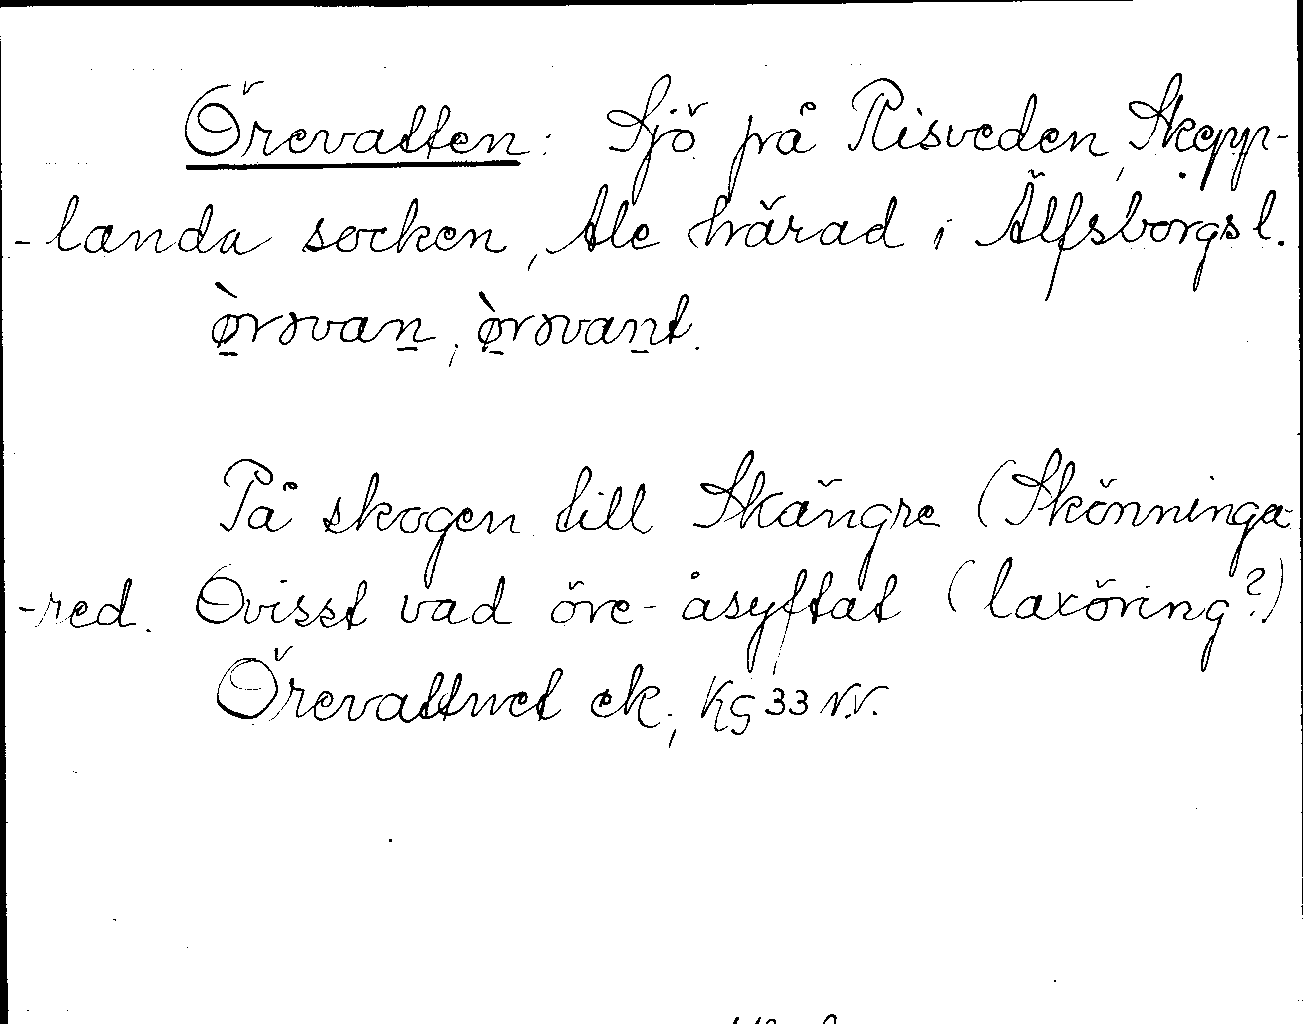 Örevatten: Sjö på Risveden, Skepp-
-landa socken, Ale härad i Älfsborgs l.
ø̠̀rəvan̠, ø̠̀rəvan̠t.
På skogen till Skängre (Skönninga-
-red. Ovisst vad öre- åsyftat (laxöring?)
Örevattnet ek; KG 33 N.V.